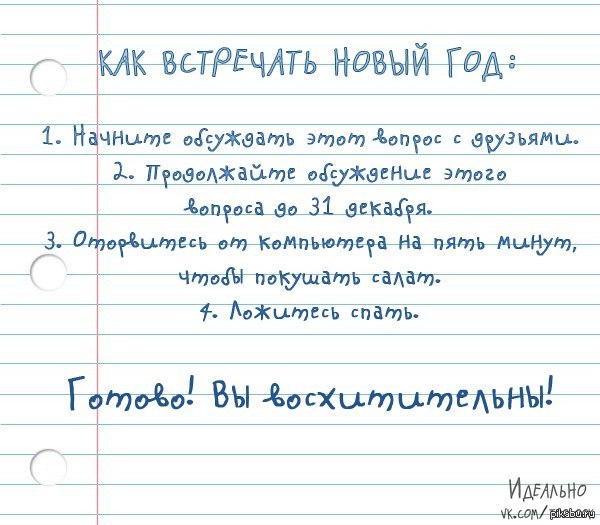 КАК ВСТРЕЧАТЬ НОВЫЙ ГОД:
1. Начните обсуждать этот вопрос с друзьями.
2. Продолжайте обсуждение этого
вопроса до 31 декабря.
3. Оторвитесь от компьютера на пять минут,
чтобы покушать салат.
4. Ложитесь спать.
Готово! Вы восхитительны!
Идеально
vk.com/
pikabu.ru